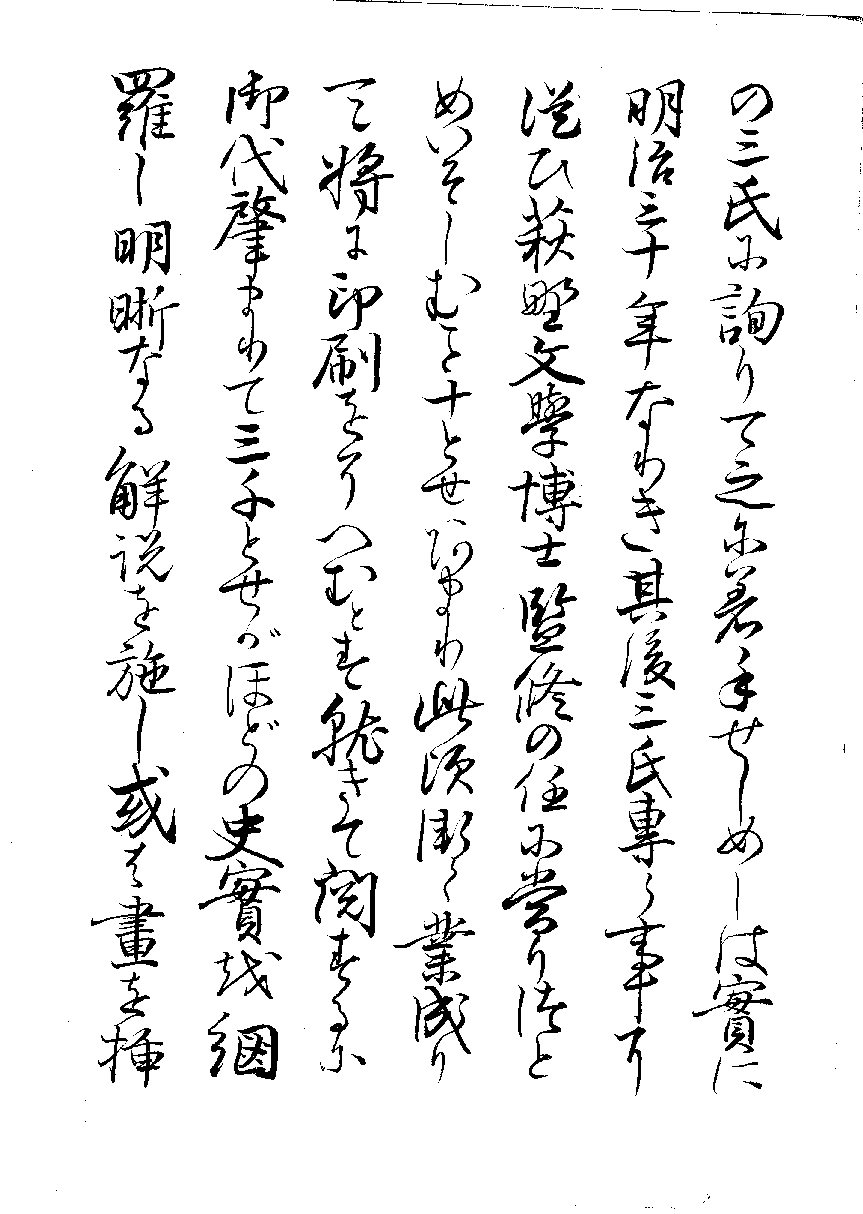 の三氏に詢りて之に著手せしめしは實に
明治三十年なりき其後三氏專ら事に
從ひ萩野文學博士監修の任に當りつと
めいそしむこと十とせあまり此頃漸く業成り
て將に印刷ををへむとす就きて閲するに
御代肇まりて三千とせがほどの史實を網
羅し明晰なる解説を施し或は畫を挿